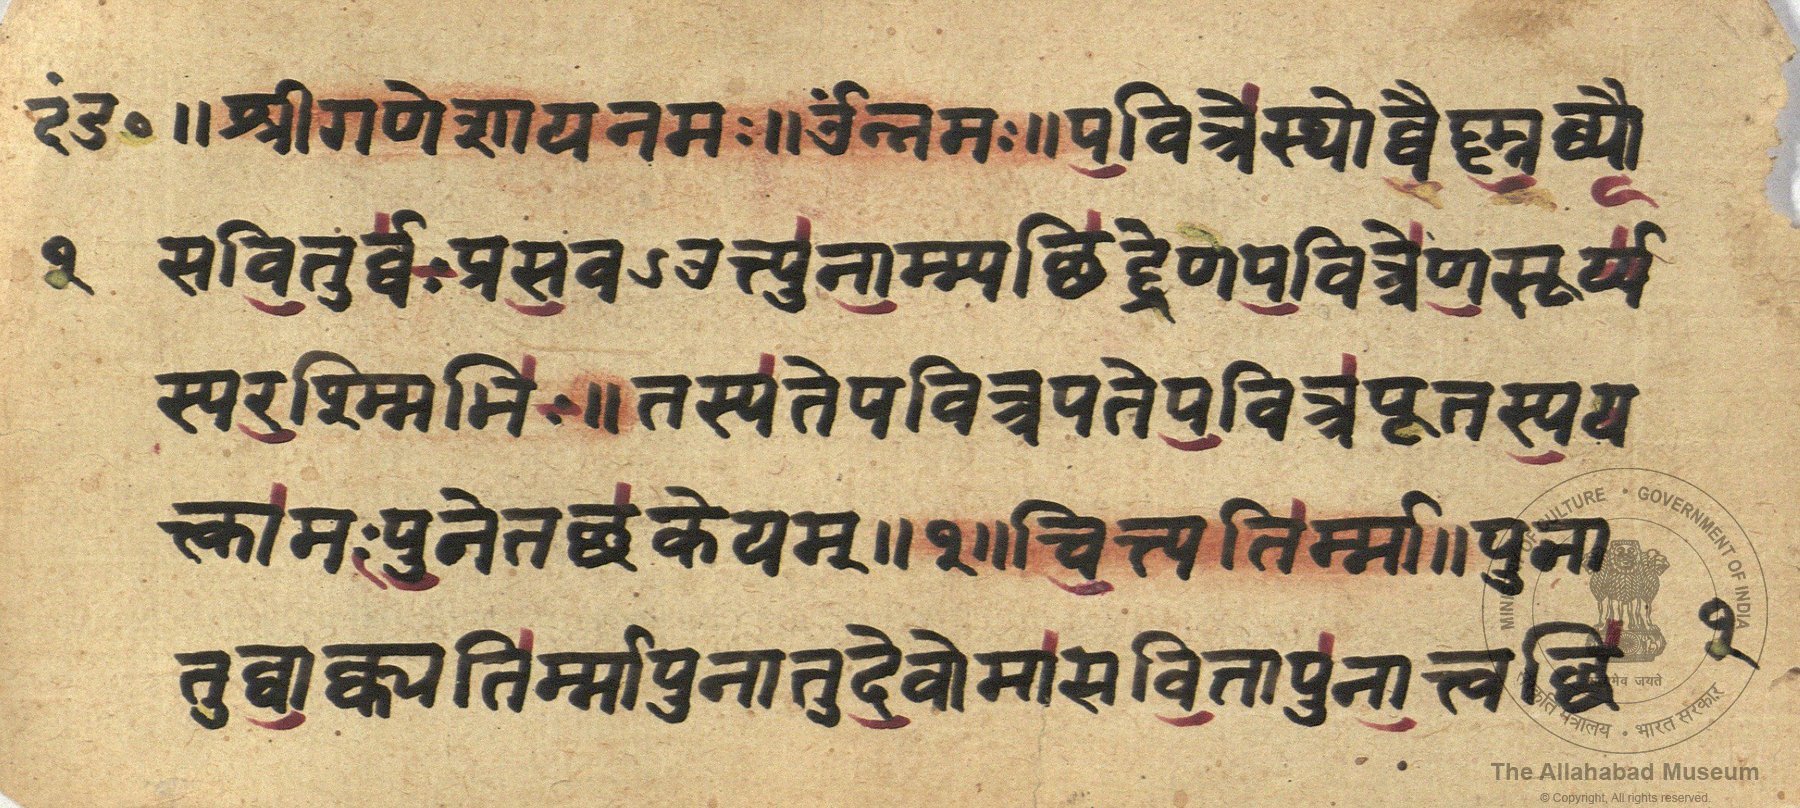 दंड० ॥श्रीगणेशायनमः॥ॐनमः॥पवित्रैस्थोव्वैष्ण्णव्यौ
१ सवितुर्व्वः प्रसवऽउत्त्पुनाम्म्यच्छिद्रेणपवित्रेणसूर्य्य
स्यरश्म्मिभिः॥तस्यतेपवित्रपतेपवित्रपूतस्यय
त्त्कामःपुनेतच्छकेयम्॥१॥च्चित्त्पतिर्म्मा॥पुना
तुव्वाक्क्पतिर्म्मापुनातुदेवोमासवितापुनात्त्वच्छि
१
MINISTRY OF CULTURE • GOVERNMENT OF INDIA
सत्यमेव जयते
संस्कृति मंत्रालय • भारत सरकार
The Allahabad Museum
© Copyright, All rights reserved.